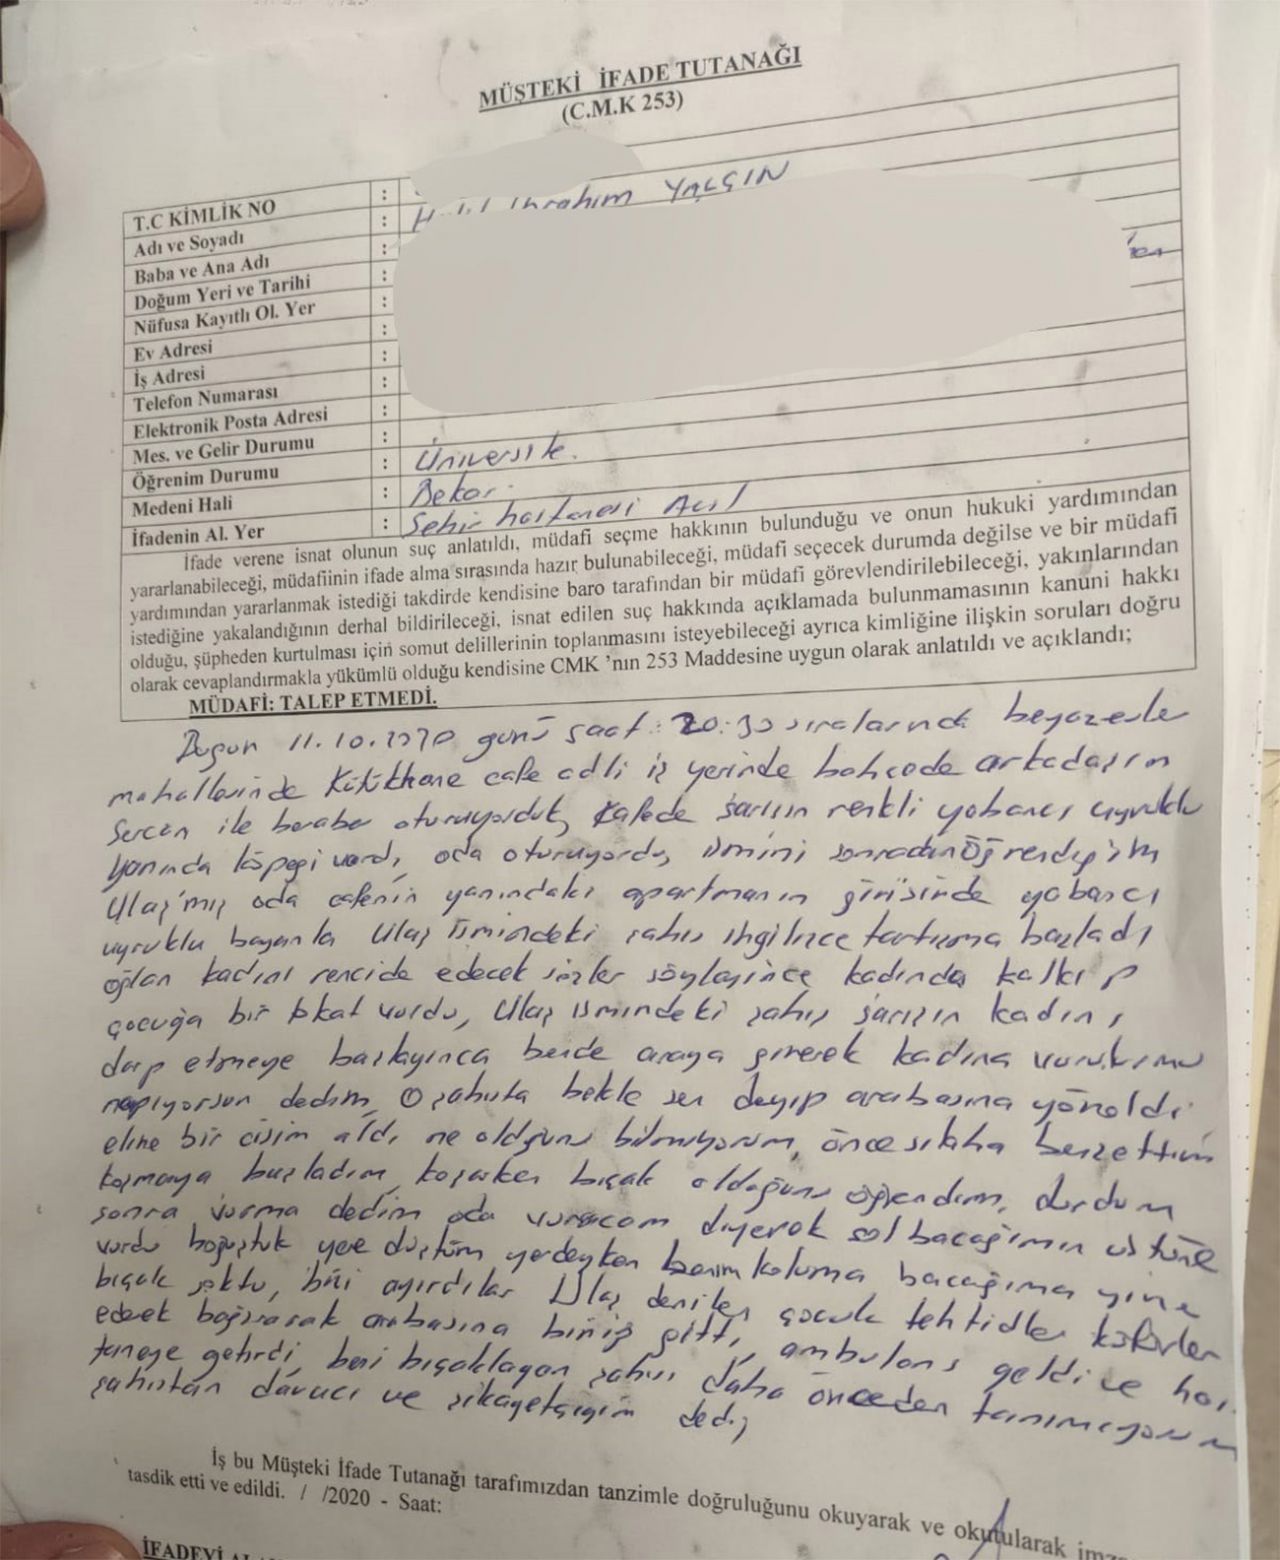 MÜŞTEKİ İFADE TUTANAĞI
(C.M.K 253)
T.C KİMLİK NO :
Adı ve Soyadı : İbrahim YALÇIN
Baba ve Ana Adı :
Doğum Yeri ve Tarihi :
Nüfusa Kayıtlı Ol. Yer :
Ev Adresi :
İş Adresi :
Telefon Numarası :
Elektronik Posta Adresi :
Mes. ve Gelir Durumu :
Öğrenim Durumu : Üniversite.
Medeni Hali : Bekar.
İfadenin Al. Yer : Şehir hastanesi Acil
İfade verene isnat olunun suç anlatıldı, müdafi seçme hakkının bulunduğu ve onun hukuki yardımından
yararlanabileceği, müdafiinin ifade alma sırasında hazır bulunabileceği, müdafi seçecek durumda değilse ve bir müdafi
yardımından yararlanmak istediği takdirde kendisine baro tarafından bir müdafi görevlendirilebileceği, yakınlarından
istediğine yakalandığının derhal bildirileceği, isnat edilen suç hakkında açıklamada bulunmamasının kanuni hakkı
olduğu, şüpheden kurtulması için somut delillerinin toplanmasını isteyebileceği ayrıca kimliğine ilişkin soruları doğru
olarak cevaplandırmakla yükümlü olduğu kendisine CMK ’nın 253 Maddesine uygun olarak anlatıldı ve açıklandı;
MÜDAFİ: TALEP ETMEDİ.
Bugün 11.10.2020 günü saat: 20:30 sıralarında beyazevle
mahallesinde Kütükhane cafe adlı iş yerinde bahçede arkadaşım
Sercan ile beraber oturuyorduk, Kafede sarışın renkli yabancı uyruklu
yanında köpeği vardı, oda oturuyordu, ismini sonradan öğrendiğim
Ulaş'mış oda cafenin yanındaki apartmanın girişinde yabancı
uyruklu bayanla Ulaş ismindeki şahıs ingilizce tartışma başladı
oğlan kadını rencide edecek sözler söyleyince kadında kalkıp
çocuğa bir tokat vurdu, Ulaş ismindeki şahıs sarışın kadını
darp etmeye başlayınca bende araya girerek kadına vurulurmu
napıyorsun dedim, O şahısta bekle sen deyip arabasına yöneldi
eline bir cisim aldı, ne olduğunu bilmiyorum, önce silaha benzettim
koşmaya başladım, koşarken bıçak olduğunu öğrendim, durdum
sonra vurma dedim oda vuracam diyerek sol bacağımın üstüne
vurdu boğuştuk yere düştüm yerdeyken benim koluma bacağıma yine
bıçak soktu, bizi ayırdılar Ulaş denilen çocuk tehtidler küfürler
ederek bağırarak arabasına binip gitti, ambulans geldi ve has
taneye getirdi, beni bıçaklayan şahsı daha önceden tanımıyorum
şahıstan davacı ve şikayetçiyim dedi,
İş bu Müşteki İfade Tutanağı tarafımızdan tanzimle doğruluğunu okuyarak ve okutularak imza
tasdik etti ve edildi. / /2020 - Saat: